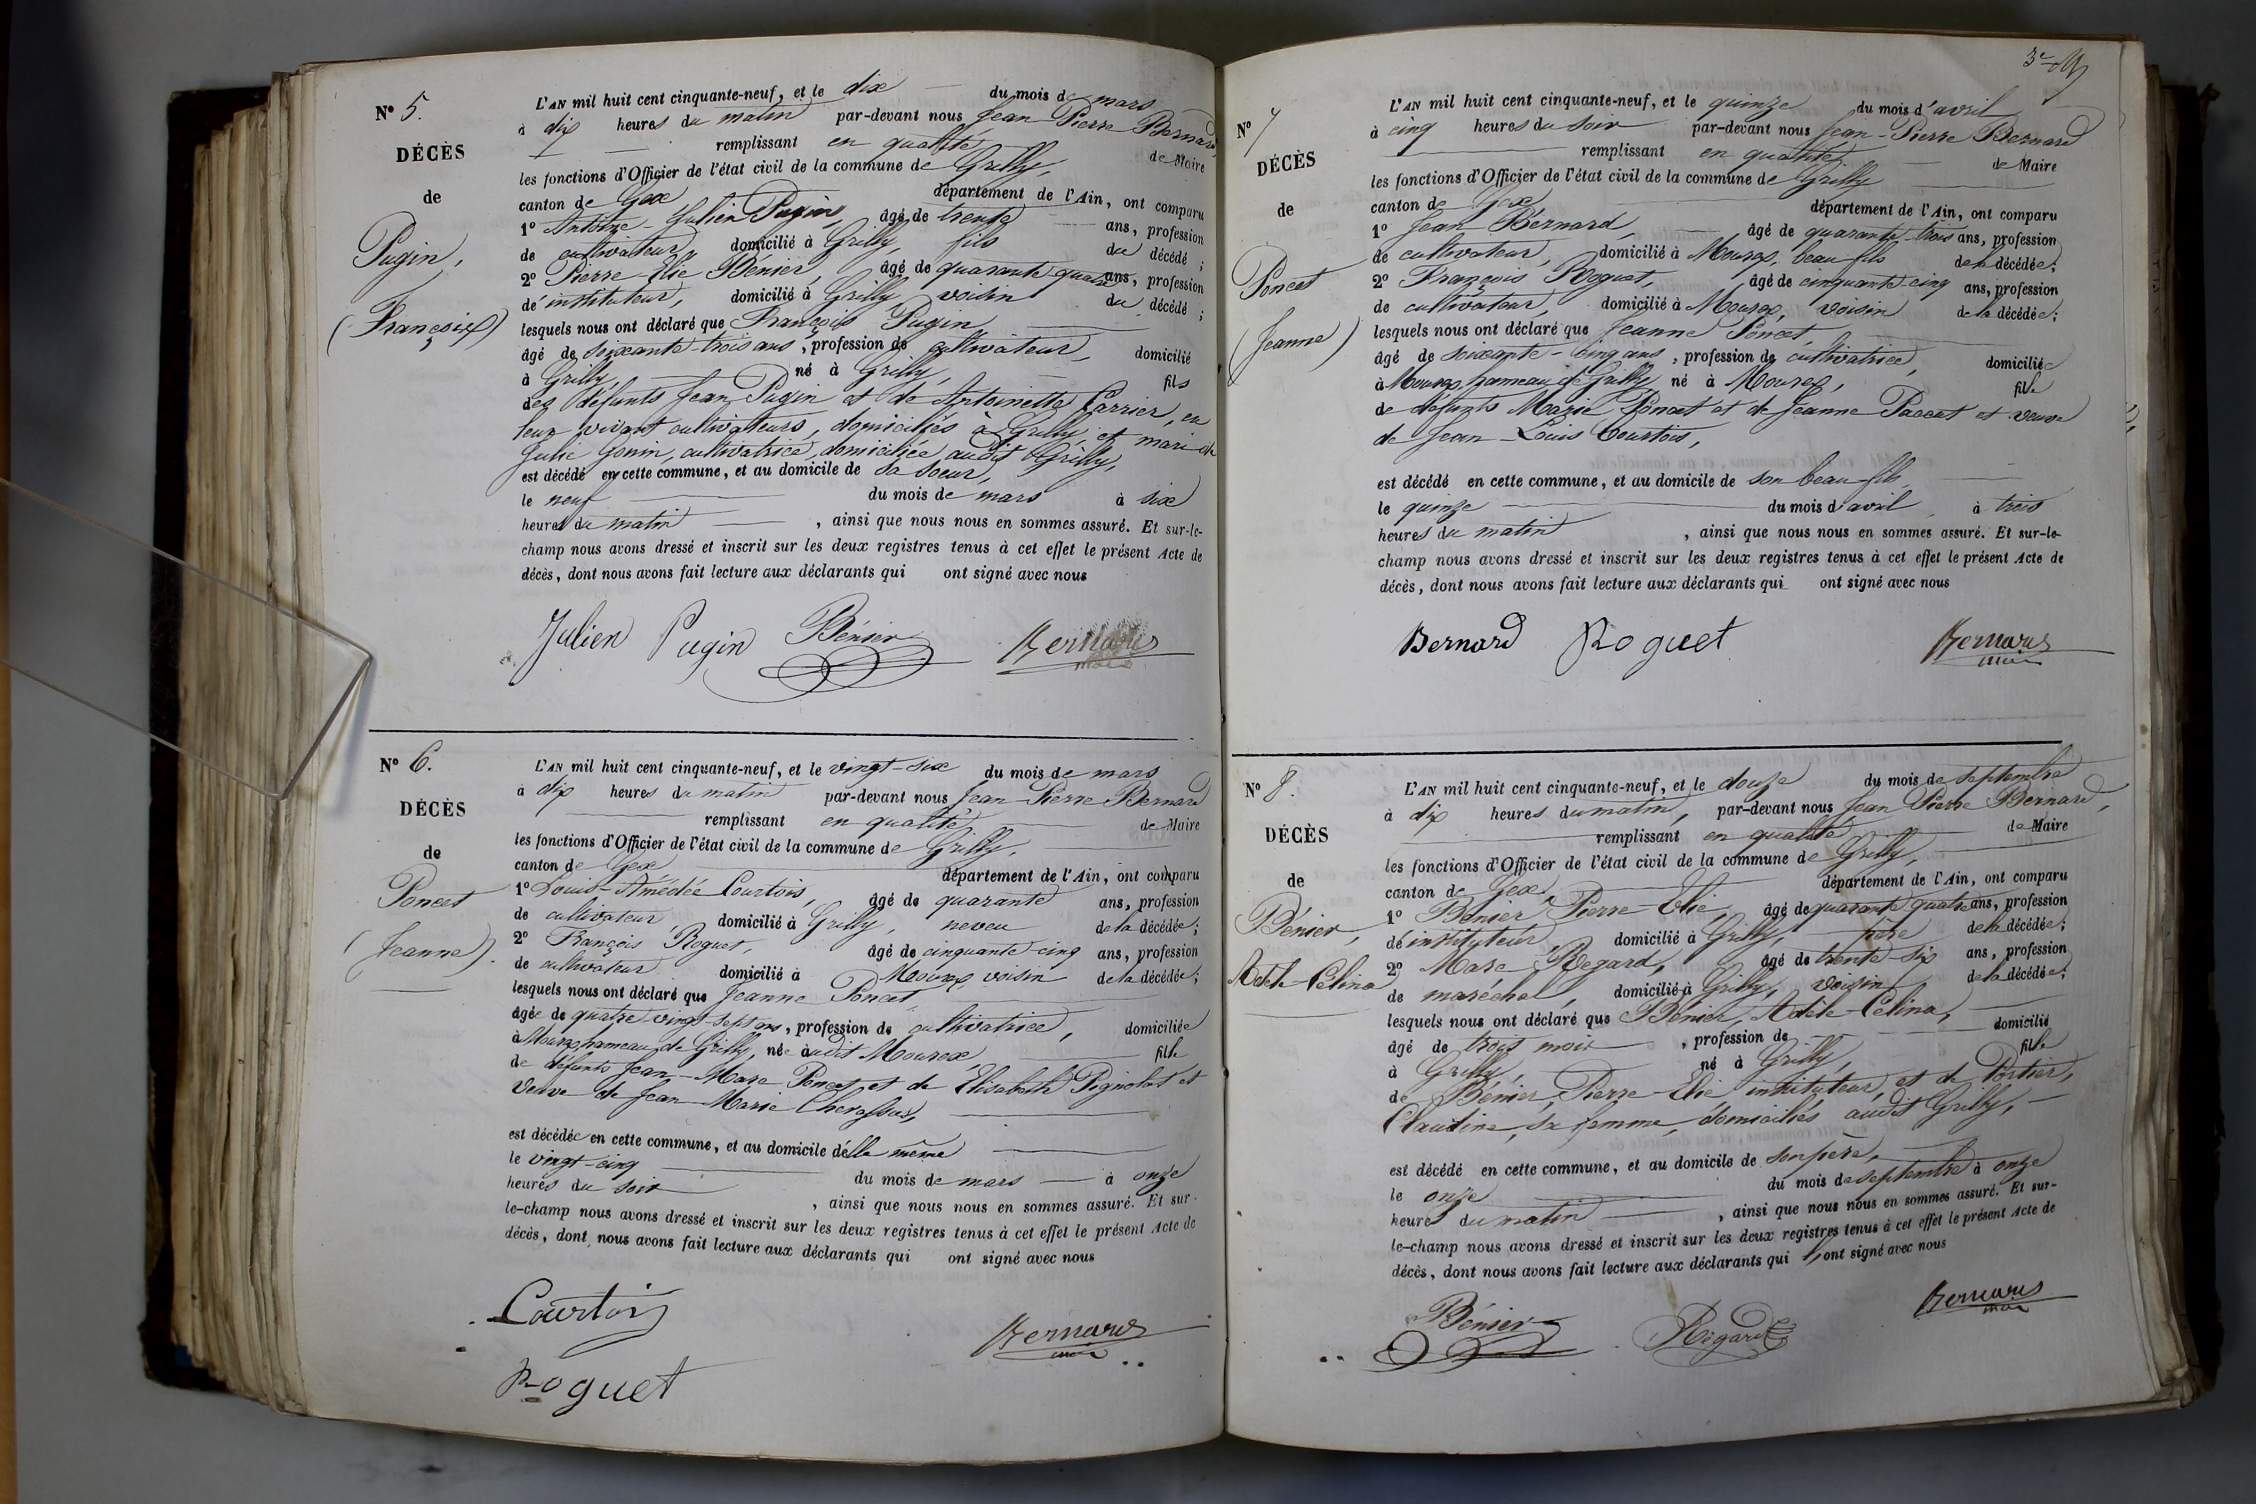 N° 5.
DÉCÈS
de
Pugin,
(François)
L'AN mil huit cent cinquante-neuf, et le dix du mois de mars
à dix heures du matin par-devant nous Jean-Pierre Bernard
remplissant en qualité de Maire
les fonctions d'Officier de l'état civil de la commune de Grilly,
canton de Gex département de l'Ain, ont comparu
1° Antoine-Julien Pugin, âgé de trente ans, profession
de cultivateur, domicilié à Grilly, fils du décédé ;
2° Pierre-Elie Bénier, âgé de quarante quatre ans, profession
d'instituteur, domicilié à Grilly, voisin du décédé ;
lesquels nous ont déclaré que François Pugin
âgé de soixante-trois ans, profession de cultivateur, domicilié
à Grilly, né à Grilly, fils
des défunts Jean Pugin et de Antoinette Carrier, en
leur vivant cultivateurs, domiciliés à Grilly, et mari de
Julie Gonin, cultivatrice, domiciliée audit Grilly,
est décédé en cette commune, et au domicile de sa soeur,
le neuf du mois de mars à six
heures du matin, ainsi que nous nous en sommes assuré. Et sur-le-
champ nous avons dressé et inscrit sur les deux registres tenus à cet effet le présent Acte de
décès, dont nous avons fait lecture aux déclarants qui ont signé avec nous
Julien Pugin Bénier Bernard
maire
N° 6.
DÉCÈS
de
Poncet
(Jeanne).
L'AN mil huit cent cinquante-neuf, et le vingt-six du mois de mars
à dix heures du matin par-devant nous Jean-Pierre Bernard
remplissant en qualité de Maire
les fonctions d'Officier de l'état civil de la commune de Grilly,
canton de Gex département de l'Ain, ont comparu
1° Louis-Amédée Courtois, âgé de quarante ans, profession
de cultivateur domicilié à Grilly, neveu de la décédée ;
2° François Roguet, âgé de cinquante-cinq ans, profession
de cultivateur domicilié à Mourex voisin de la décédée ;
lesquels nous ont déclaré que Jeanne Poncet
âgée de quatre-vingt-sept ans, profession de cultivatrice, domiciliée
à Mourex hameau de Grilly, née audit Mourex, fille
de défunts Jean-Marc Poncet et de Elisabeth Pignolet et
veuve de Jean-Marie Chevassus,
est décédée en cette commune, et au domicile d'elle même
le vingt-cinq du mois de mars à onze
heures du soir, ainsi que nous nous en sommes assuré. Et sur-
le-champ nous avons dressé et inscrit sur les deux registres tenus à cet effet le présent Acte de
décès, dont nous avons fait lecture aux déclarants qui ont signé avec nous
Courtois
Bernard
maire
Roguet
3e
N° 7
DÉCÈS
de
Poncet
(Jeanne)
L'AN mil huit cent cinquante-neuf, et le quinze du mois d'avril
à cinq heures du soir par-devant nous Jean-Pierre Bernard
remplissant en qualité de Maire
les fonctions d'Officier de l'état civil de la commune de Grilly
canton de Gex département de l'Ain, ont comparu
1° Jean Bernard, âgé de quarante-trois ans, profession
de cultivateur, domicilié à Mourex, beau-fils de la décédée ;
2° François Roguet, âgé de cinquante-cinq ans, profession
de cultivateur, domicilié à Mourex, voisin de la décédée ;
lesquels nous ont déclaré que Jeanne Poncet,
âgé de soixante-cinq ans, profession de cultivatrice, domiciliée
à Mourex hameau de Grilly, né à Mourex, fille
de défunts Marie Poncet et de Jeanne Poncet et veuve
de Jean-Louis Courtois,
est décédé en cette commune, et au domicile de son beau-fils,
le quinze du mois d'avril à trois
heures du matin, ainsi que nous nous en sommes assuré. Et sur-le-
champ nous avons dressé et inscrit sur les deux registres tenus à cet effet le présent Acte de
décès, dont nous avons fait lecture aux déclarants qui ont signé avec nous
Bernard Roguet Bernard
maire
N° 8.
DÉCÈS
de
Bénier,
Adèle-Célina
L'AN mil huit cent cinquante-neuf, et le douze du mois de septembre
à dix heures du matin, par-devant nous Jean Pierre Bernard,
remplissant en qualité de Maire
les fonctions d'Officier de l'état civil de la commune de Grilly,
canton de Gex, département de l'Ain, ont comparu
1° Bénier Pierre-Elie, âgé de quarante quatre ans, profession
d'instituteur, domicilié à Grilly, père de la décédée ;
2° Marc Regard, âgé de trente-six ans, profession
de maréchal, domicilié à Grilly, voisin de la décédée ;
lesquels nous ont déclaré que Bénier, Adèle-Célina,
âgé de trois mois, profession de domicilié
à Grilly, né à Grilly, fille
de Bénier, Pierre-Elie, instituteur, et de Portier,
Claudine, sa femme, domiciliés audit Grilly,
est décédé en cette commune, et au domicile de son père,
le onze du mois de septembre à onze
heures du matin, ainsi que nous nous en sommes assuré. Et sur-
le-champ nous avons dressé et inscrit sur les deux registres tenus à cet effet le présent Acte de
décès, dont nous avons fait lecture aux déclarants qui ont signé avec nous
Bénier Régard Bernard
maire